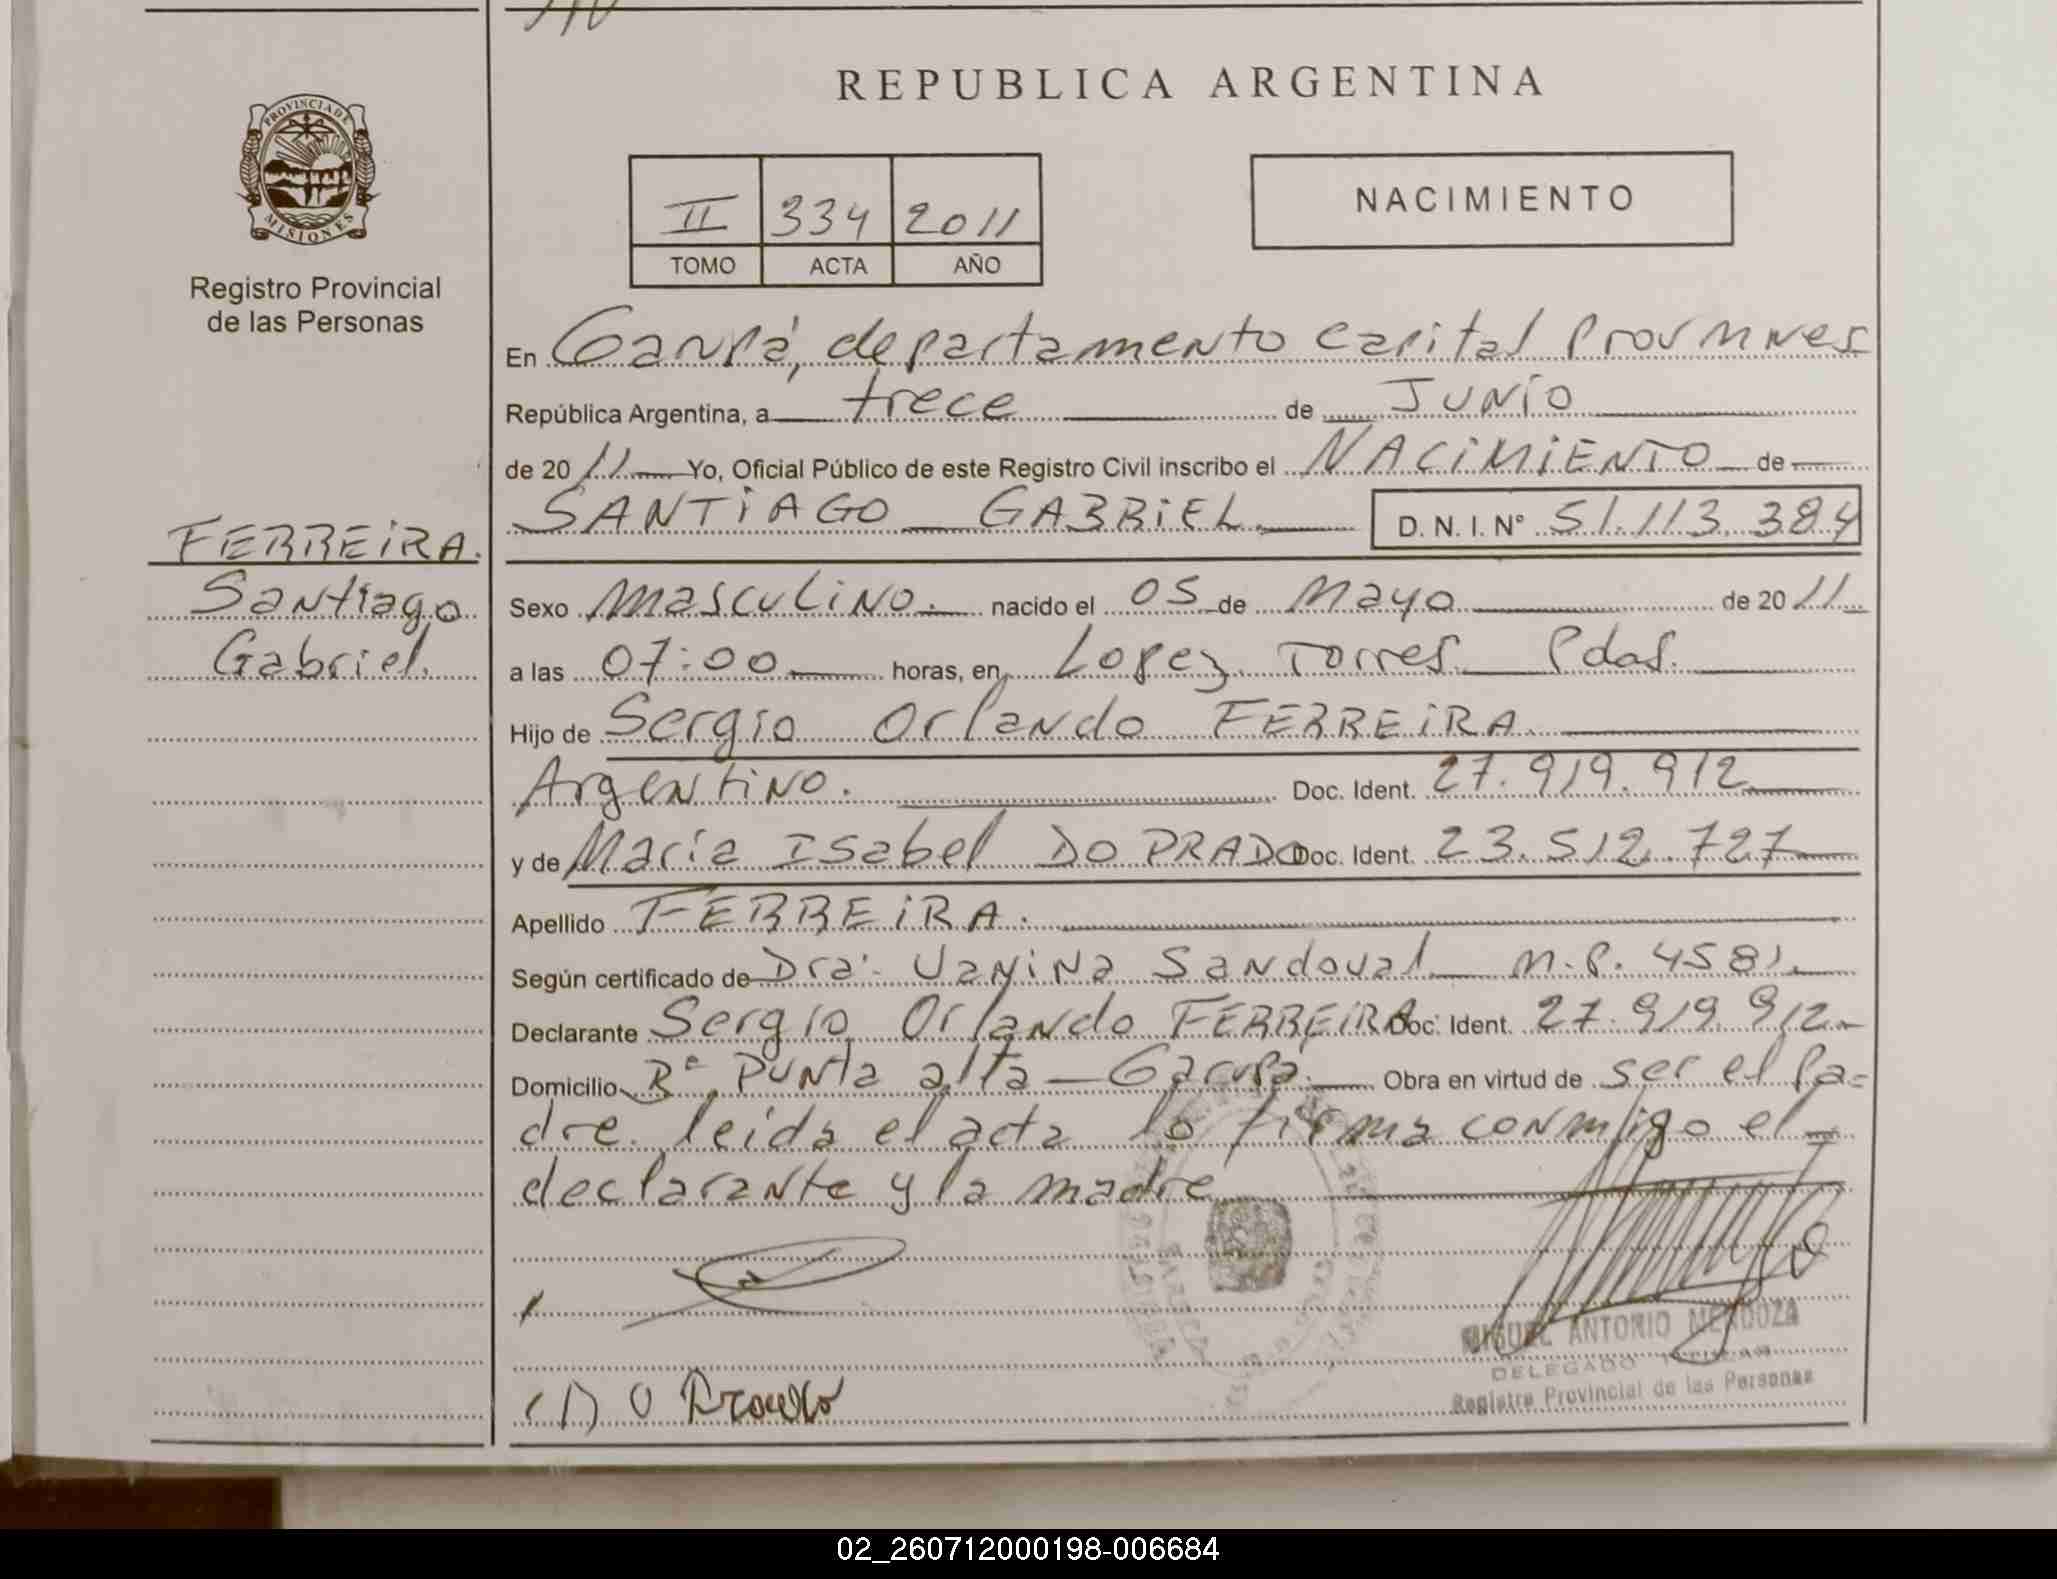 REPUBLICA ARGENTINA
PROVINCIA DE
MISIONES
Registro Provincial
de las Personas
II 334 2011
TOMO ACTA AÑO
NACIMIENTO
En Garupá, departamento Capital Prov
República Argentina, a trece de Junio
de 2011 Yo, Oficial Público de este Registro Civil inscribo el NACIMIENTO de
SANTIAGO GABRIEL D. N. I. N° 51.113.384
FERREIRA.
Santiago
Gabriel.
Sexo Masculino. nacido el 05 de Mayo de 2011
a las 07:00 horas, en Lopez Torres Pdas.
Hijo de Sergio Orlando FERREIRA
Argentino. Doc. Ident. 27.919.912
y de Maria Isabel DO PRADO Doc. Ident. 23.512.727
Apellido FERREIRA.
Según certificado de Dra. Vanina Sandoval M.P. 4581
Declarante Sergio Orlando FERREIRA Doc. Ident. 27.919.912
Domicilio B° Punta alta - Garupá. Obra en virtud de ser el Pa=
dre. leida el acta lo firma conmigo el
declarante y la madre
MIGUEL ANTONIO MENDOZA
DELEGADO TITULAR
Registro Provincial de las Personas
02_260712000198-006684